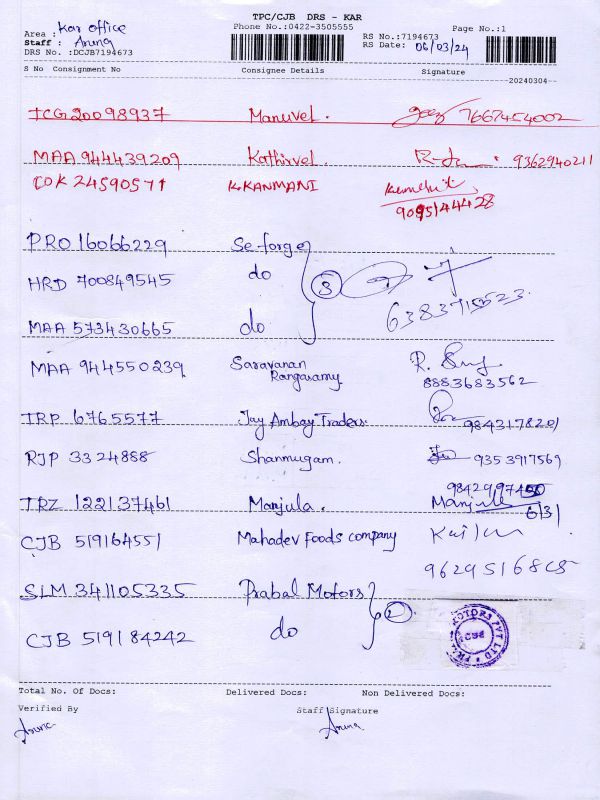 TPC/CJB DRS - KAR
Area : Kar office Phone No.:0422-3505555 Page No.:1
Staff : Aruna RS No.:7194673
DRS No. :DCJB7194673 RS Date: 06/03/24
S No Consignment No Consignee Details Signature
20240304
TCG20098937 Manuvel. 7667454002
MAA 944439209 Kathirvel. 9362940211
COK 24590571 K.KANMANI
9095144428
PRO 16066229 Seforge
HRD 700849545 do 3
6383715523
MAA 573430665 do
MAA 944550239 Saravanan R.
Rangasamy 8883683562
TRP 6765577 Jay Ambay Traders 9843178201
RJP 3324888 Shanmugam. 9353917569
TRZ 122137461 Manjula. Manjula
6/3/
CJB 519164551 Mahadev Foods company
9629516868
SLM 341105335 Prabal Motors
2
CJB 519184242 do MOTORS PVT LTD
Total No. Of Docs: Delivered Docs: Non Delivered Docs:
Verified By Staff Signature
Aruna Aruna